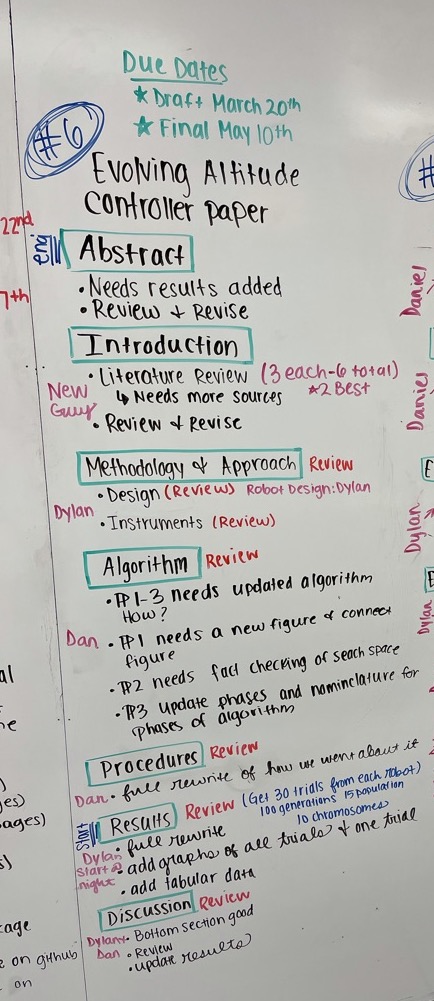 Due Dates
★ Draft March 20th
★ Final May 10th
#6
Evolving Altitude
Controller paper
22nd
eng
Abstract
• Needs results added
7th
• Review & Revise
Introduction
• Literature Review (3 each-6 total)
↳ Needs more sources *2 Best
New
Guy
• Review & Revise
Methodology & Approach Review
• Design (Review) Robot Design: Dylan
Dylan
• Instruments (Review)
Algorithm Review
• ¶1-3 needs updated algorithm
How?
Dan • ¶1 needs a new figure & connect
figure
• ¶2 needs fact checking of seach space
• ¶3 update phases and nominclature for
phases of algorithm
Procedures Review
Dan • full rewrite of how we went about it
start
Results Review (Get 30 trials from each robot)
100 generations 15 population
10 chromosomes
Dylan • full rewrite
start @ • add graphs of all trials & one trial
night • add tabular data
Discussion Review
Dylan & • Bottom section good
Dan • Review
• update results
#
Daniel
Daniel
Dylan
Dylan
al
ges)
pages)
s)
on github
on